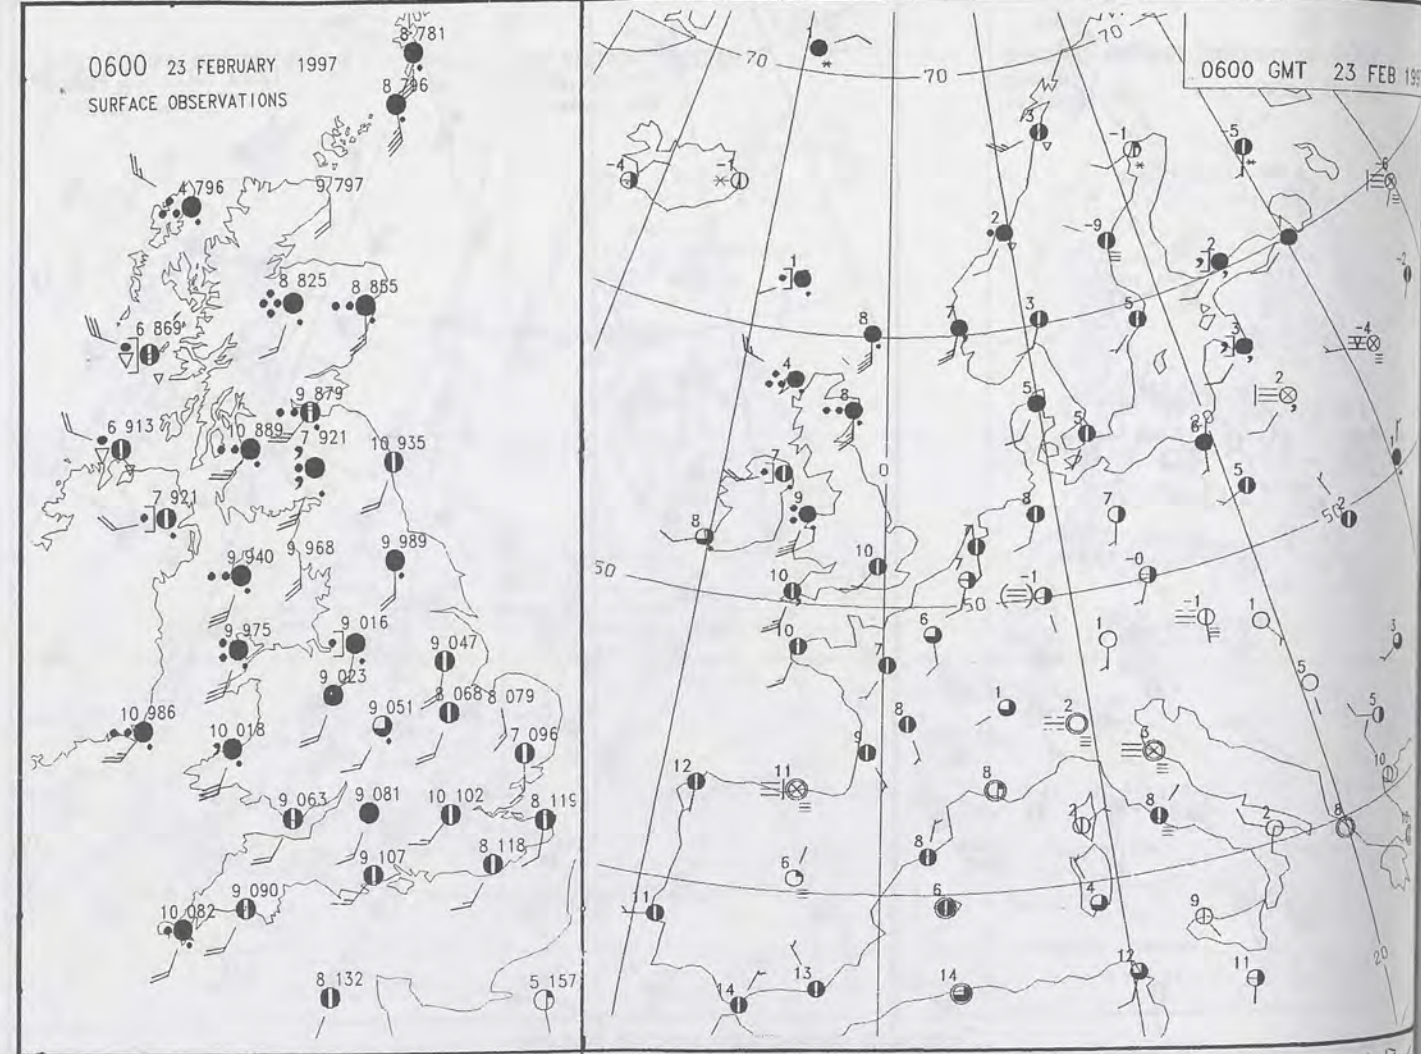 0600 23 FEBRUARY 1997
SURFACE OBSERVATIONS
8 781
8 796
4 796
9 797
8 825
8 855
6 869
9 879
6 913
10 889
7 921
10 935
7 921
9 940
9 968
9 989
9 975
9 016
9 047
9 023
8 068
8 079
10 986
10 018
9 051
7 096
9 063
9 081
10 102
8 119
9 107
8 118
9 090
10 082
8 132
5 157
0600 GMT 23 FEB 199
70
70
70
1
-3
-1
-5
-6
-4
-1
2
-9
2
-2
1
8
7
3
5
3
-4
4
8
5
5
2
6
7
0
9
8
7
5
50
2
8
10
10
7
7
-1
-0
50
50
-1
1
3
10
7
6
1
5
8
1
2
3
5
9
12
11
8
2
8
2
8
10
6
8
11
6
4
9
14
13
14
12
11
20